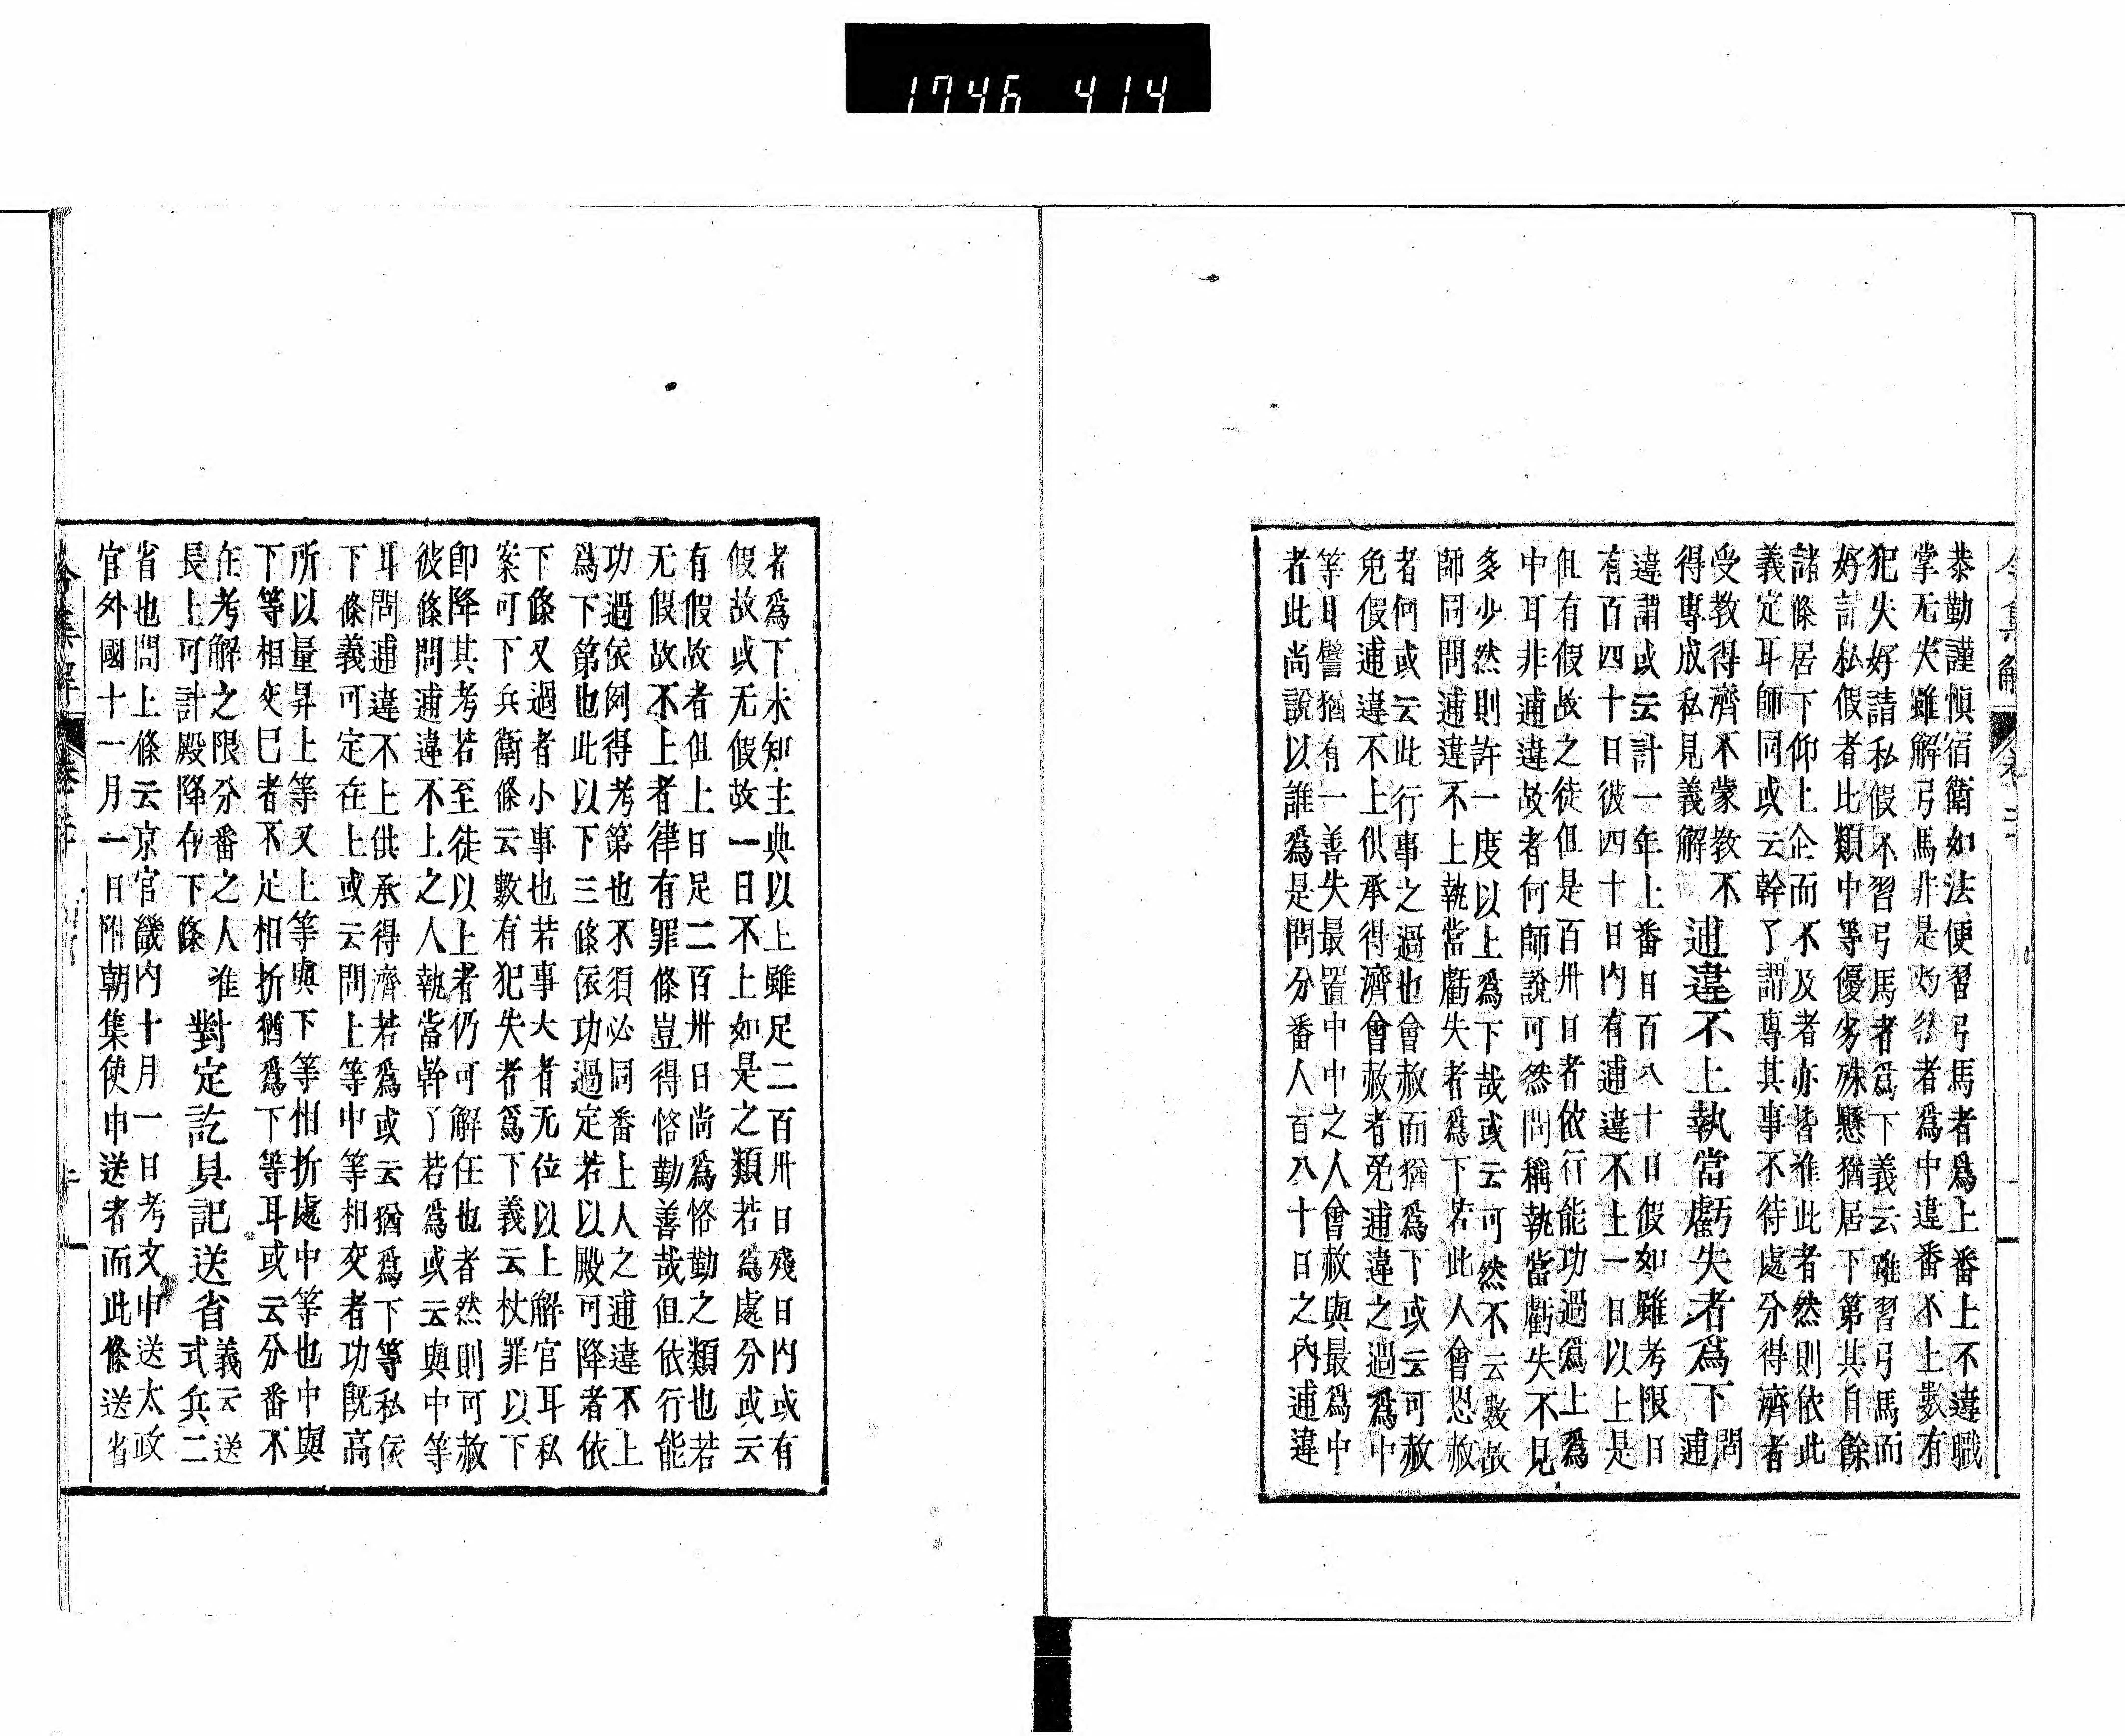 1746 414
恭勤謹愼宿衛如法便習弓馬者爲上番上不違職
掌无失雖解弓馬非是灼然者爲中違番不上數有
犯失好請私假不習弓馬者爲下義云雖習弓馬而
好請私假者比類中等優劣殊懸猶居下第其自餘
諸條居下仰上企而不及者亦皆准此者然則依此
義定耳師同或云幹了謂專其事不待處分得濟者
受教得濟不蒙教不
得專成私見義解
逋違不上執當虧失者爲下
問
逋
違謂或云計一年上番日百八十日假如雖考限日
有百四十日彼四十日内有逋違不上一日以上是
但有假故之徒但是百卅日者依行能功過爲上爲
中耳非逋違故者何師說可然問稱執當虧失不見
多少然則許一度以上爲下哉或云可然不云數故
師同問逋違不上執當虧失者爲下若此人會恩赦
者何或云此行事之過也會赦而猶爲下或云可赦
免假逋違不上供承得濟會赦者免逋違之過爲中
等耳譬猶有一善失最置中中之人會赦與最爲中
者此尚說以誰爲是問分番人百八十日之內逋違
者爲下未知主典以上雖足二百卅日殘日内或有
假故或无假故一日不上如是之類若爲處分或云
有假故者但上日足二百卅日尚爲恪勤之類也若
无假故不上者律有罪條豈得恪勤善哉但依行能
功過依例得考第也不須必同番上人之逋違不上
爲下第也此以下三條依功過定若以殿可降者依
下條又過者小事也若事大者无位以上解官耳私
案可下兵衛條云數有犯失者爲下義云杖罪以下
卽降其考若至徒以上者仍可解任也者然則可赦
彼條問逋違不上之人執當幹了若爲或云與中等
耳問逋違不上供承得濟若爲或云猶爲下等私依
下條義可定在上或云問上等中等相交者功旣高
所以量昇上等又上等與下等相折處中等也中與
下等相交已者不足相折猶爲下等耳或云分番不
在考解之限分番之人准
長上可計殿降在下條
對定訖具記送省
義云送
式兵二
省也問上條云京官畿内十月一日考文申送太政
官外國十一月一日附朝集使申送者而此條送省